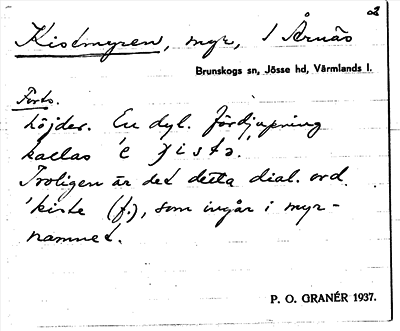 2
Kistmyren, myr, 1 Årnäs
Brunskogs sn, Jösse hd, Värmlands l.
Forts.
höjder. En dyl. fördjupning
kallas 'e
Troligen är det detta dial. ord.
'kiste (f.), som ingår i myr-
namnet.
P. O. GRANÉR 1937.